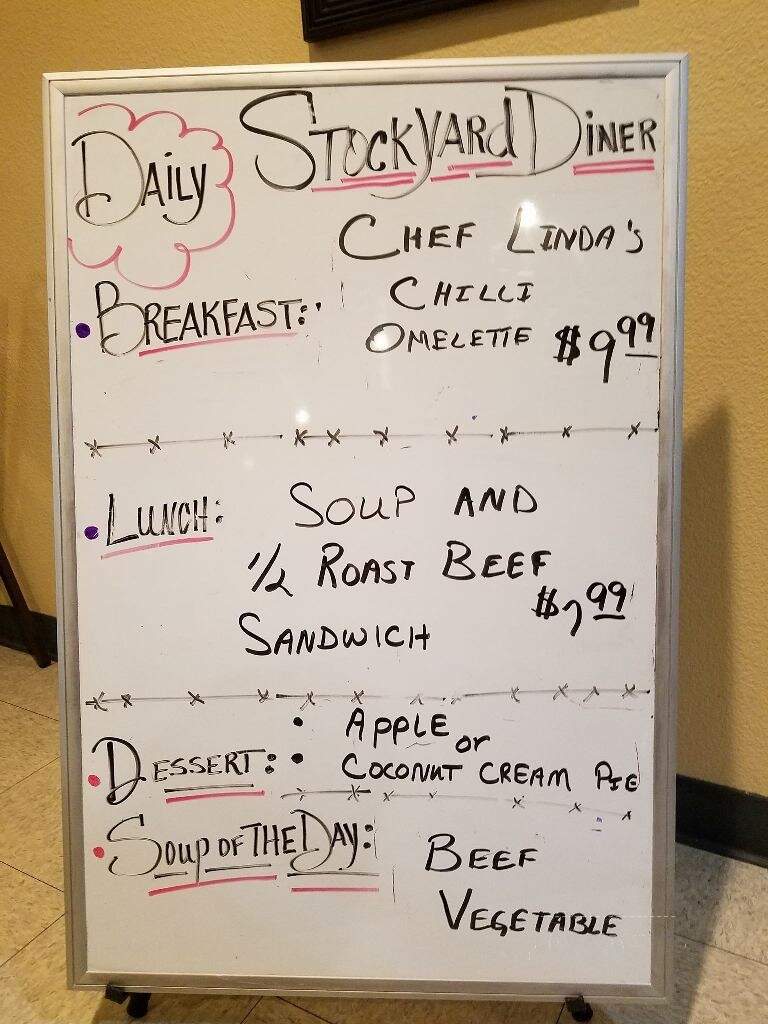 Daily
StockyArd Diner
Chef Linda's
Chilli
• Breakfast: Omelette $9.99
• Lunch: Soup and
1/2 Roast Beef
Sandwich $7.99
• Apple or
• Dessert: • Coconut Cream Pie
• Soup of the Day: Beef
Vegetable